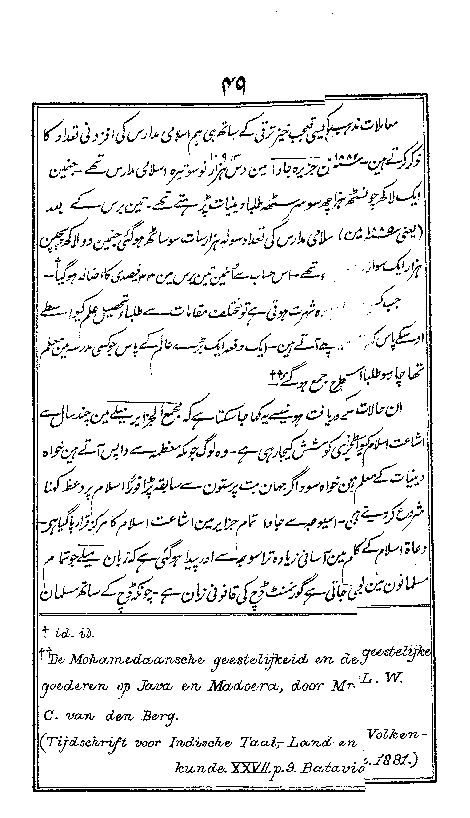 ۴۹
معاملات مذہب کیسی تعجب خیز ترقی کے ساتھ ہی ہم اسلامی مدارس کی افزونی تعداد کا
ذکر کرتے ہین۔ ۱۸۸۲ مین جزیرہ جاوا مین دس ہزار نو سو تیرہ اسلامی مدارس تھے۔ جنین
ایک لاکھ چونسٹھ ہزار چھ سو سٹھ طلبا دینیات پڑہتے تھے۔ تین برس کے بعد
(یعنی ۱۸۸۵ مین) اسلامی مدارس کی تعداد سولہ ہزار سات سو ساٹھ ہو گئی جنین دو لاکھ پچپن
ہزار ایک سو تھے۔ اس حساب سے تین برس مین فیصدی کا اضافہ ہو گیا†۔
جب کسی شہرت ہوتی ہے تو مختلف مقامات سے طلبا تحصیل علم کیواسطے
اوسکے پاس آتے ہین۔ ایک دفعہ ایک بڑے عالم کے پاس جو کسی مدرسہ مین معلم
تھا چار سو طلبا اسطرح جمع ہو گئے††۔
ان حالات کے دریافت ہونیسے یہ کہا جا سکتا ہے کہ مجمع الجزائر ملے مین چند سال سے
اشاعت اسلام کی کوشش کیجا رہی ہے۔ وہ لوگ جو مکہ معظمہ سے واپس آتے ہین خواہ
دینیات کے معلم ہین خواہ سوداگر جہان بت پرستون سے سابقہ پڑا فوراً اسلام پر وعظ کہنا
شروع کر دیتے ہین۔ اسیوجہ سے جاوا تمام جزایر مین اشاعت اسلام کا مرکز قرار پا گیا ہی۔
دعاۃ اسلام کے کام مین آسانی زیادہ تر اسوجہ سے اور پیدا ہو گئی ہے کہ زبان ملے جو تمام
مسلمانون مین بولی جاتی ہے گورنمنٹ ڈچ کی قانونی زبان ہے۔ چونکہ ڈچ کے ساتھ مسلمان
† id. ib.
††De Mohamedaansche geestelijkeid en de geestelijke
goederen op Java en Madoera, door Mr L. W.
C. van den Berg.
(Tijdschrift voor Indische Taal-, Land en Volken-
kunde. XXVII. p.9. Batavia .1881.)